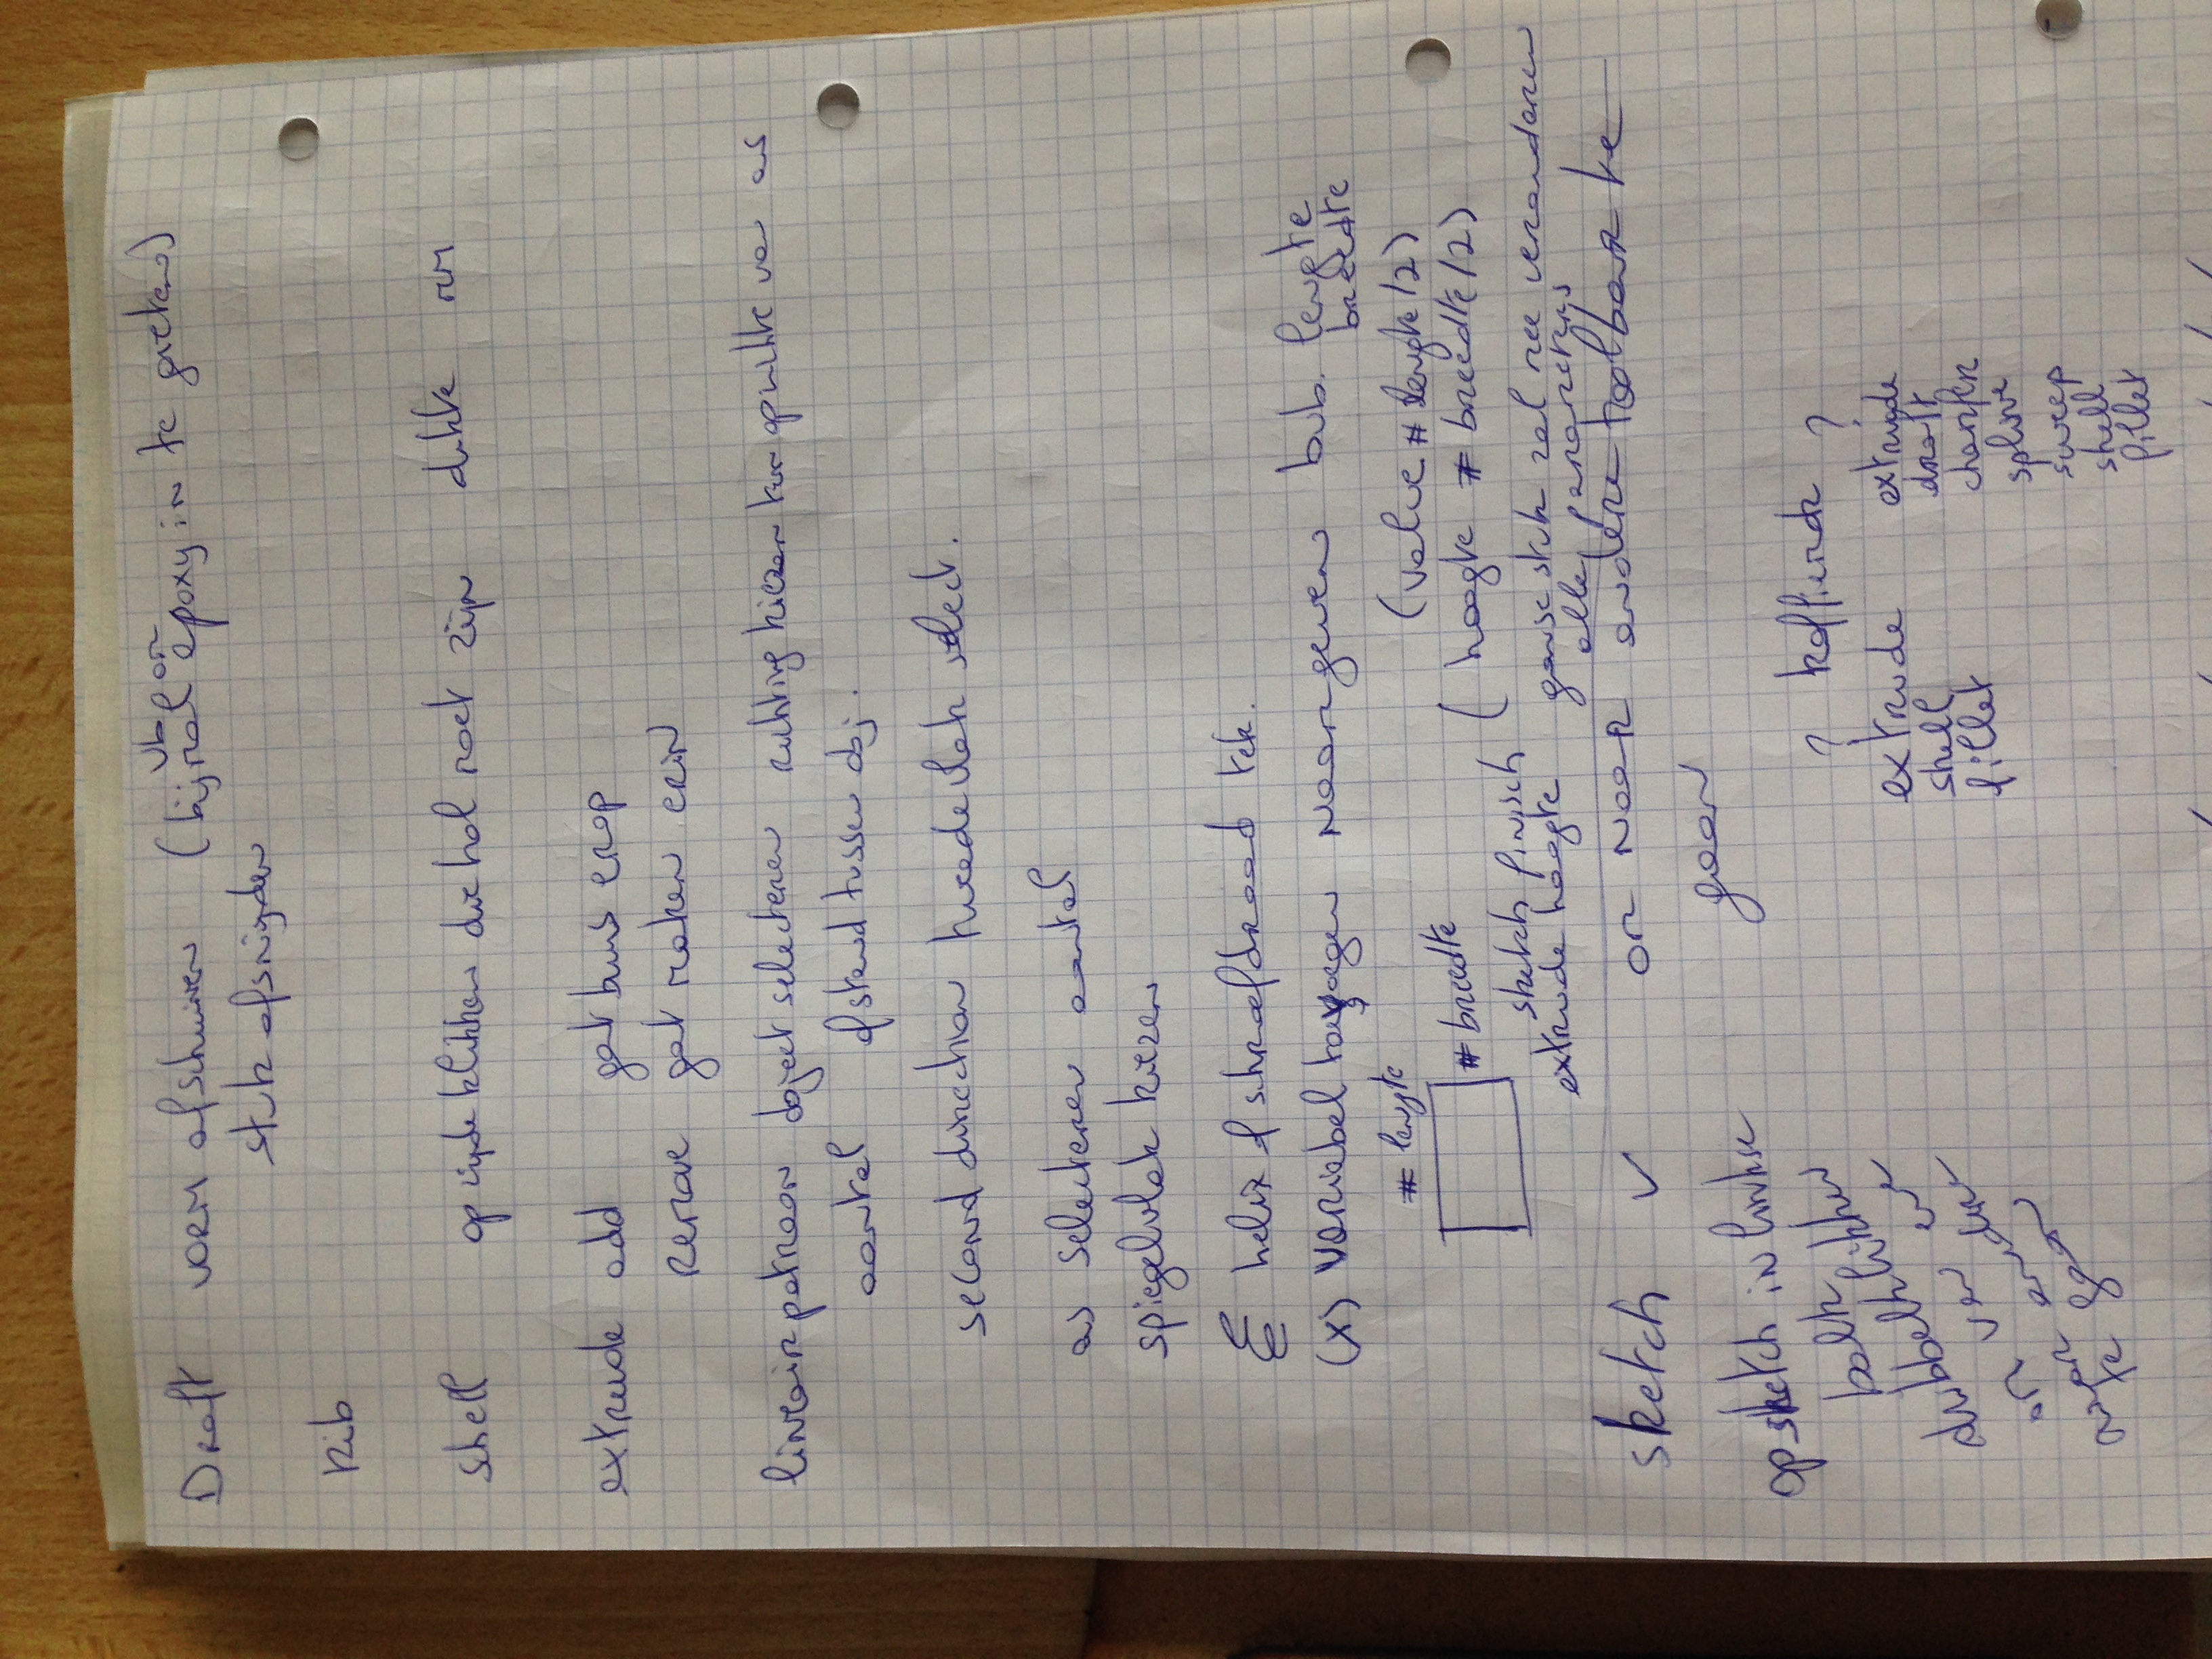 Draft vorm afschuinen (bijmal vb om epoxy in te gieten)
stuk afsnijden
Rib
shell op zijde klikken die hol moet zijn dikte mm
extrude add gat buis erop
remove gat maken erin
lineair patroon object selecteren richting kiezen kan opwitte van as
aantal afstand tussen obj.
second direction tweede vlak select.
as selecteren aantal
spiegelvlak kiezen
helix schroefdraad tek.
(x) variabel toevoegen naam geven bub. lengte
breedte
# lengte (value # lengte/2)
# breedte (hoogte # breedte/2)
sketch finish
extrude hoogte
ganse stuk zal mee veranderen
alle parameters
sketch v om naar andere toolbar te
gaan
op sketch in linkse
balk
dubbelklikken
om
te gaan
? koffietje ?
extrude
shell
fillet
extrude
draft
chamfer
spline
sweep
shell
fillet